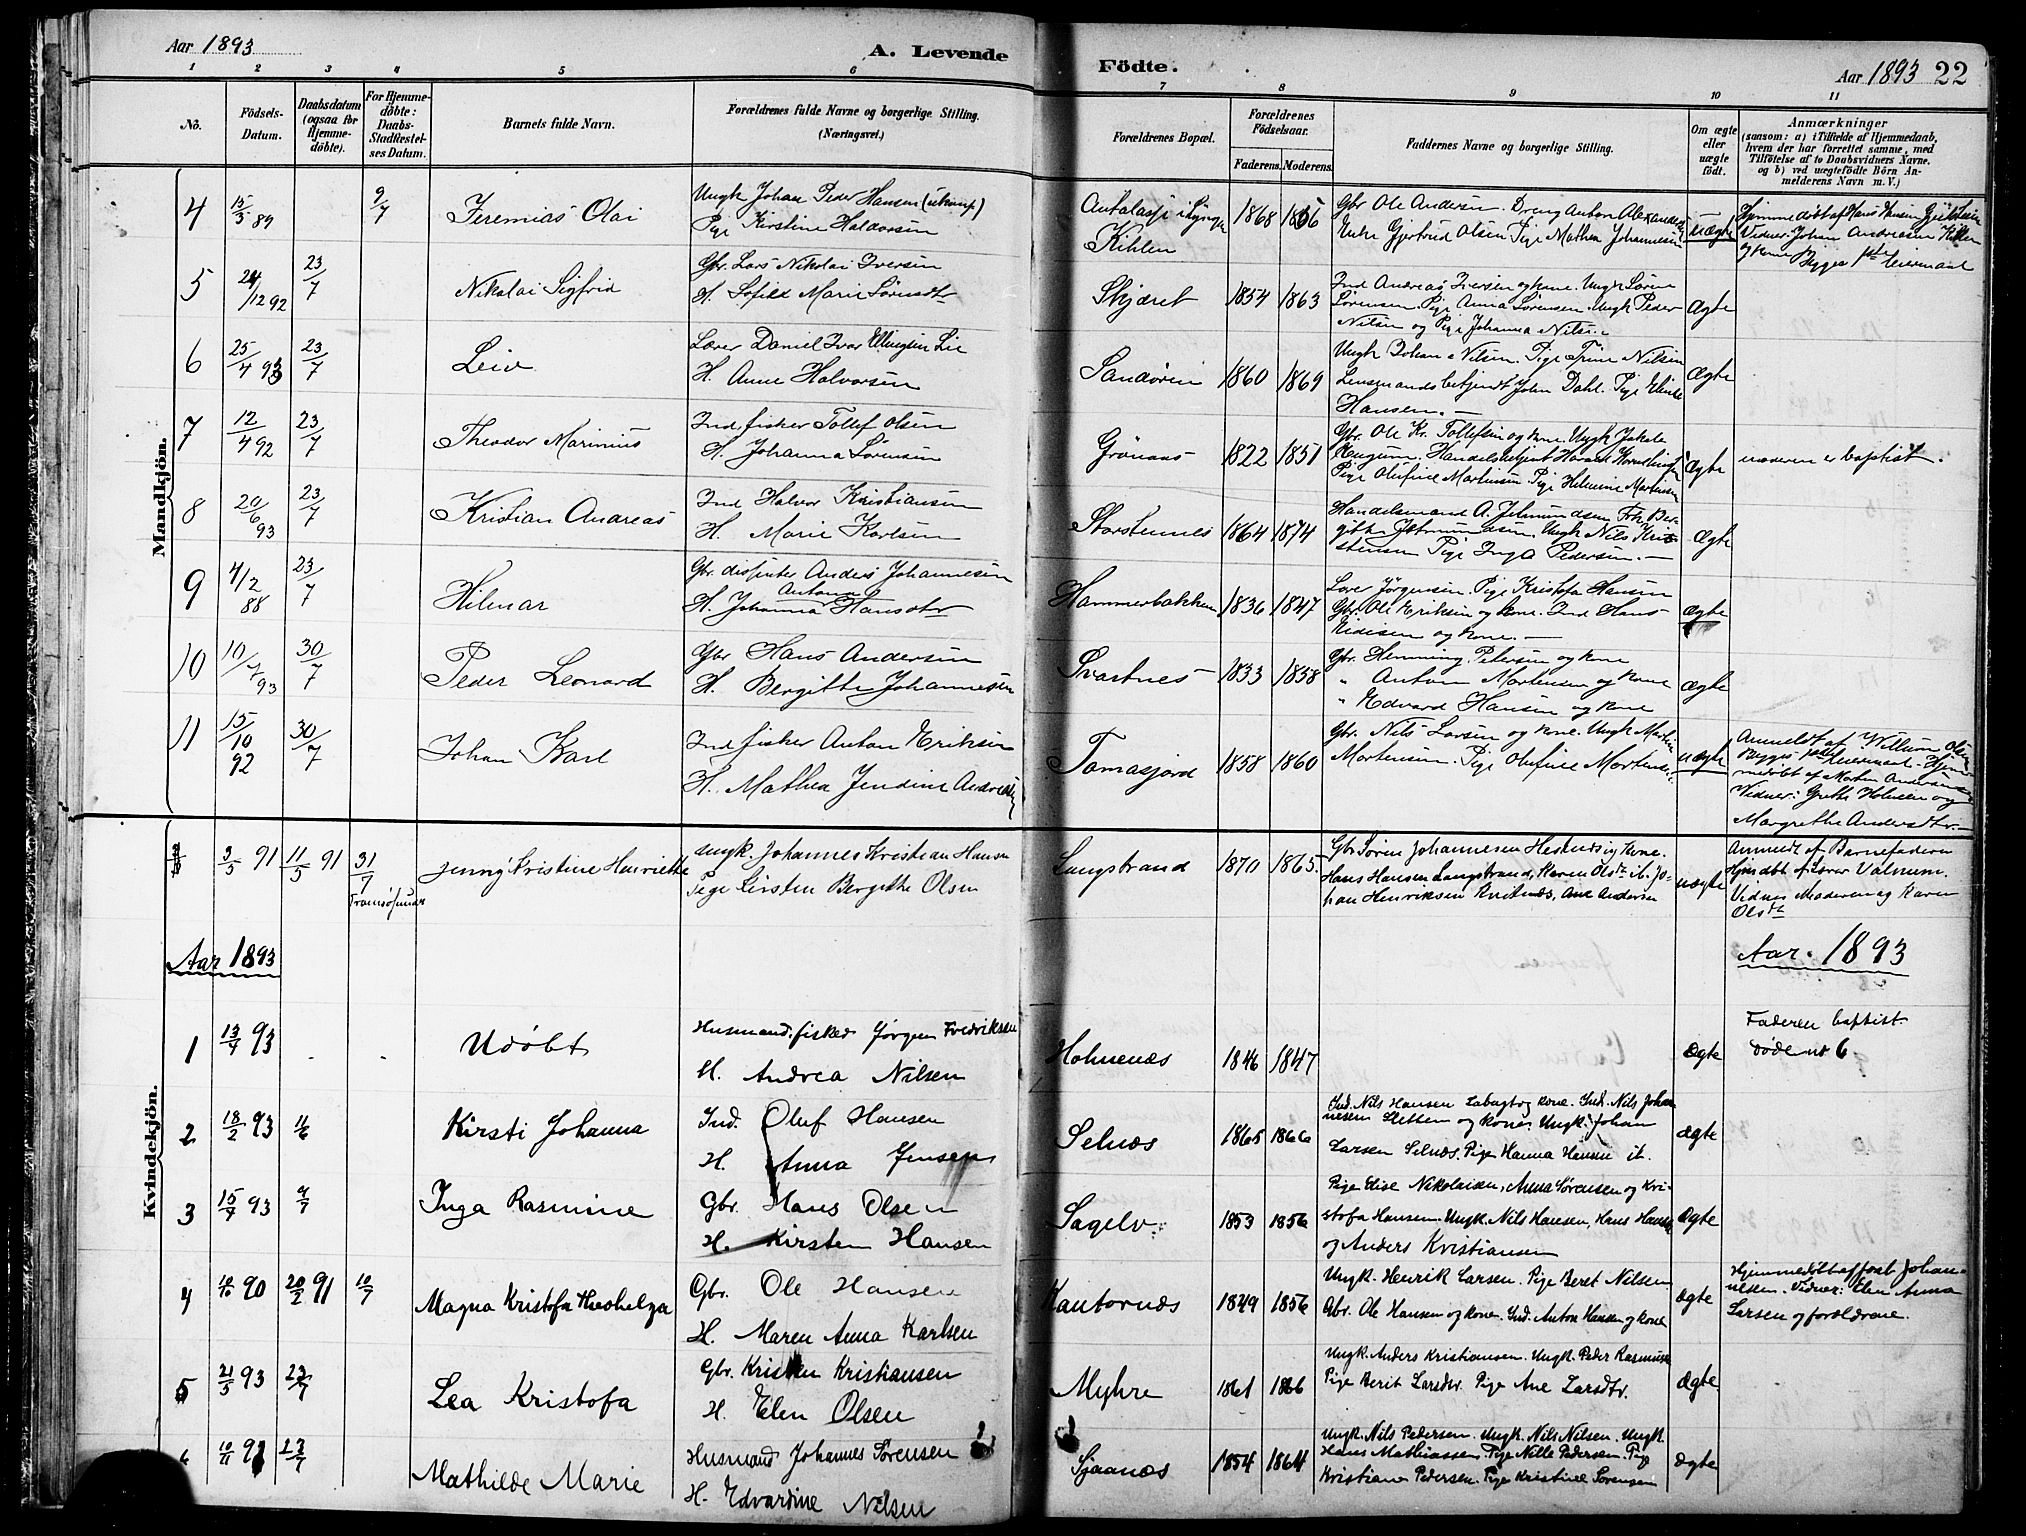 Aar 1893
A. Levende
Födte.
Aar 1893 22
1 2 3 4 5 6 7 8 9 10 11
No.
Födsels-
Datum.
Daabsdatum
(ogsaa for
Hjemme-
döbte).
For Hjemme-
döbte:
Daabs-
Stadfæstel-
ses Datum.
Barnets fulde Navn.
Forældrenes fulde Navne og borgerlige Stilling.
(Næringsvei.)
Forældrenes Bopæl.
Forældrenes
Födselsaar.
Faderens. Moderens.
Faddernes Navne og borgerlige Stilling.
Om ægte
eller
uægte
födt.
Anmærkninger
(saasom: a) i Tilfælde af Hjemmedaab,
hvem der har forrettet samme, med
Tilföielse af to Daabsvidners Navne.
og b) ved uægtefödte Börn An-
melderens Navn m. V.)
Mandkjön.
4 15/3 89 9/7 Jeremias Olai
Ungk Johan Peder Hansen
Pige Kirstine Haldorsen
Kihlen 1868 1856
Gbr Ole Andersen. Dreng Anton
Enke Gjertrud Olsen Pige Mathea Johannesen
uægte
Hjemmedöbt af Hans Hansen
Vidner: Johan Andreasen
og kone Begges 1ste leiermaal
5 24/12 92 23/7 Nikolai Sigfrid
Gbr. Lars Nikolai Iversen
H. Sofie Marie Sørensdtr
Skjæret 1854 1863
Ind Andreas Iversen og kone. Ungk Søren
Sørensen. Pige Anna Sørensen. Ungk Peder
Nilsen og Pige Johanna Nilsen
Ægte
6 25/4 93 23/7 Leiv
Lærer Daniel Ivar Ellingsen Lie
H. Anne Halvorsen
Sandøren 1860 1869
Ungk Johan Nilsen. Pige Trine Nilsen
Lensmandsbetjent John Dahl. Pige
Hansen.
Ægte
7 12/4 92 23/7 Theodor Marinius
Ind fisker Tollef Olsen
H. Johanna Sørensen
Grønaas 1822 1851
Gbr. Ole Kr. Tollefsen og kone. Ungk
Handelsbetjent
Pige Olufine Martensen Pige Helmine Martensen
Ægte
moderen er baptist.
8 20/6 93 23/7 Kristian Andreas
Ind Halvor Kristiansen
H. Marie Karlsen
Storstennes 1864 1874
Handelsmand A.
Ungk Nils Kri-
stensen Pige Inga Pedersen.
Ægte
9 4/2 88 23/7 Hilmar
Gbr. dissenter Anders Johannesen
Antona
H. Johanna Hansdtr
Hammerbakken 1836 1847
Lars Jørgensen. Pige Kristofa Hansen
Gbr. Ole Eriksen og kone. Ind Hans
og kone.
ægte
10 10/7 93 30/7 Peder Leonard
Gbr Hans Andersen
H. Bergitte Johannesen
Svartnes 1833 1838
Gbr. Henning Petersen og kone
" Anton Mortensen og kone
" Edvard Hansen og kone
Ægte
11 15/10 92 30/7 Johan Karl
Ind fisker Anton Eriksen
H. Mathea Jendine
Tomasjord 1858 1860
Gbr. Nils Larsen og kone. Ungk Martin
Mortensen. Pige Olufine Mortensen
uægte
Anmeldt af Willum Olsen
Begges leiermaal. Hjem-
medöbt af
Vidner: Grethe
Margrethe Andersdtr.
3/5 91 11/5 91 31/7 Jenny Kristine Henriette
Ungk. Johannes Kristian Hansen
Pige Kirsten Bergitte Olsen
Langstrand 1870 1865
Gbr Sören Johannesen Hestnes og Kone.
Hans Hansen Langstrand, Karen Olsdtr ib. Jo-
han Henriksen Kvitnæs, Ane Andersen
uægte
Anmeldt af Barnefaderen
Hjmdbt af Lærer Valnum.
Vidner Moderen og Karen
Olsdtr
Aar 1893
Aar. 1893
Kvindekjön.
1 13/4 93 Udöbt
Husmand, fisker Jörgen Fredriksen
H. Andrea Nilsen
Holmenæs 1846 1847
Ægte
Faderen baptist.
döde no 6
2 18/2 93 11/6 Kirsti Johanna
Ind. Oluf Hansen
H. Anna Jensen
Selnæs 1865 1866
Ind. Nils Hansen og kone. Ind. Nils Johan-
nesen Sletten og kone. Ungk. Johan
Larsen Selnæs. Pige Hanna Hansen ib.
ægte
3 15/7 93 9/7 Inga Rasmine
Gbr. Hans Olsen
H. Kirsten Hansen
Sagelv 1853 1856
Pige Elise Nikolaisen, Anna Sørensen og Kri-
stofa Hansen. Ungk. Nils Hansen, Hans Hansen
og Anders Kristiansen
Ægte
4 10/10 90 20/2 91 10/7 Magna Kristofa
Gbr. Ole Hansen
H. Maren Anna Karlsen
Kantornæs 1849 1856
Ungk. Henrik Larsen. Pige Beret Nilsen
Gbr. Ole Hansen og kone. Ind. Anton Hansen og kone
ægte
Hjemmedöbt af Johan-
nesen. Vidner: Elen Anna
Larsen og forældrene.
5 21/5 93 23/7 Lea Kristofa
Gbr. Kristen Kristiansen
H. Elen Olsen
Myhre 1861 1866
Ungk. Anders Kristiansen. Ungk. Peder Rasmusen
Pige Berit Larsdtr. Pige Ane Larsdtr.
Ægte
6 10/11 91 23/7 Mathilde Marie
Husmand Johannes Sörensen
H. Edvardine Nilsen
Sjaanæs 1854 1864
Ungk. Nils Pedersen. Ungk. Nils Nilsen. Ungk.
Hans Mathiassen. Pige Nille Pedersen. Pige
Kristiane Pedersen. Pige Kristine Sörensen
ægte